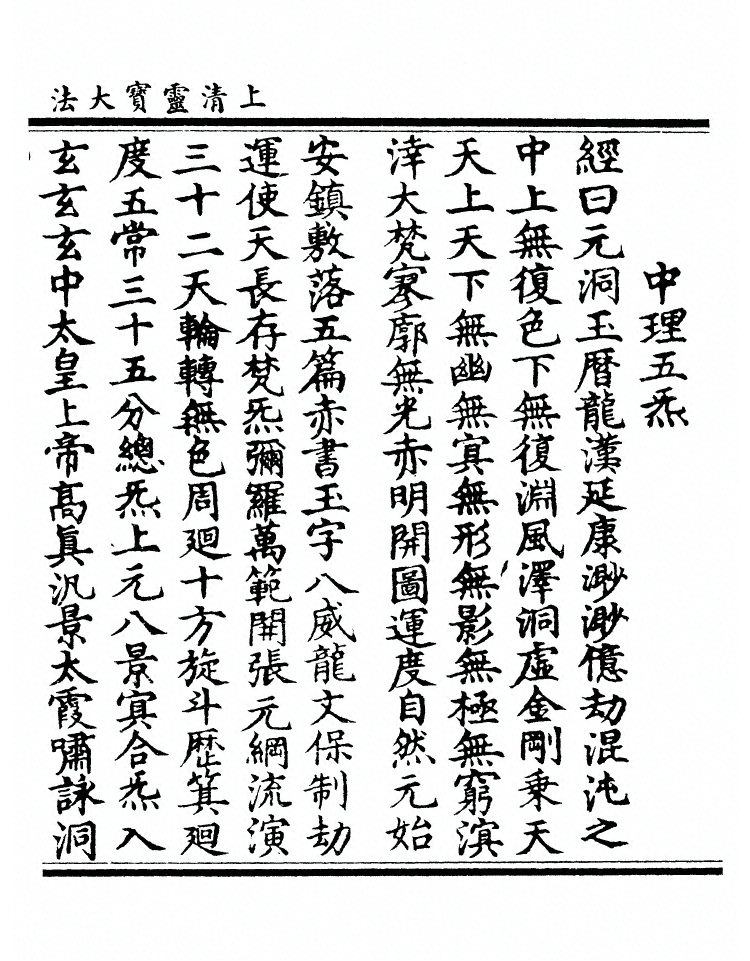 上清靈寶大法
中理五炁
經曰元洞玉曆龍漢延康渺渺億劫混沌之
中上無復色下無復淵風澤洞虛金剛乘天
天上天下無幽無冥無形無影無極無窮溟
涬大梵寥廓無光赤明開圖運度自然元始
安鎮敷落五篇赤書玉字八威龍文保制劫
運使天長存梵炁彌羅萬範開張元綱流演
三十二天輪轉無色周廻十方旋斗歷箕廻
度五常三十五分總炁上元八景冥合炁入
玄玄玄中太皇上帝高眞汎景太霞嘯詠洞